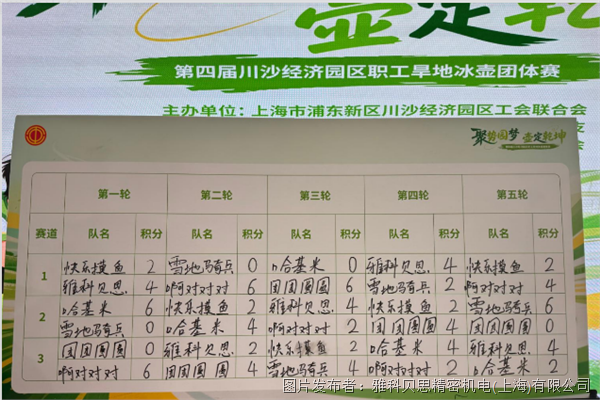 壶定乾
第四届川沙经济园区职工旱地冰壶团体赛
主办单位：上海市浦东新区川沙经济园区工会联合会
支
会
聚势园梦 壶定乾坤
第一轮 第二轮 第三轮 第四轮 第五轮
赛道 队名 积分 队名 积分 队名 积分 队名 积分 队名 积分
1 快乐摸鱼 2 雪地骑兵 0 哈基米 0 雅科贝思 4 快乐摸鱼 2
雅科贝思 4 啊对对对 6 团团圆圆 6 雪地骑兵 2 啊对对对 4
2 哈基米 6 快乐摸鱼 2 雅科贝思 4 快乐摸鱼 2 雪地骑兵 6
雪地骑兵 0 哈基米 4 啊对对对 2 团团圆圆 4 团团圆圆 0
3 团团圆圆 0 雅科贝思 2 快乐摸鱼 2 哈基米 4 雅科贝思 4
啊对对对 6 团团圆圆 4 雪地骑兵 4 啊对对对 2 哈基米 2
图片发布者：雅科贝思精密机电(上海)有限公司